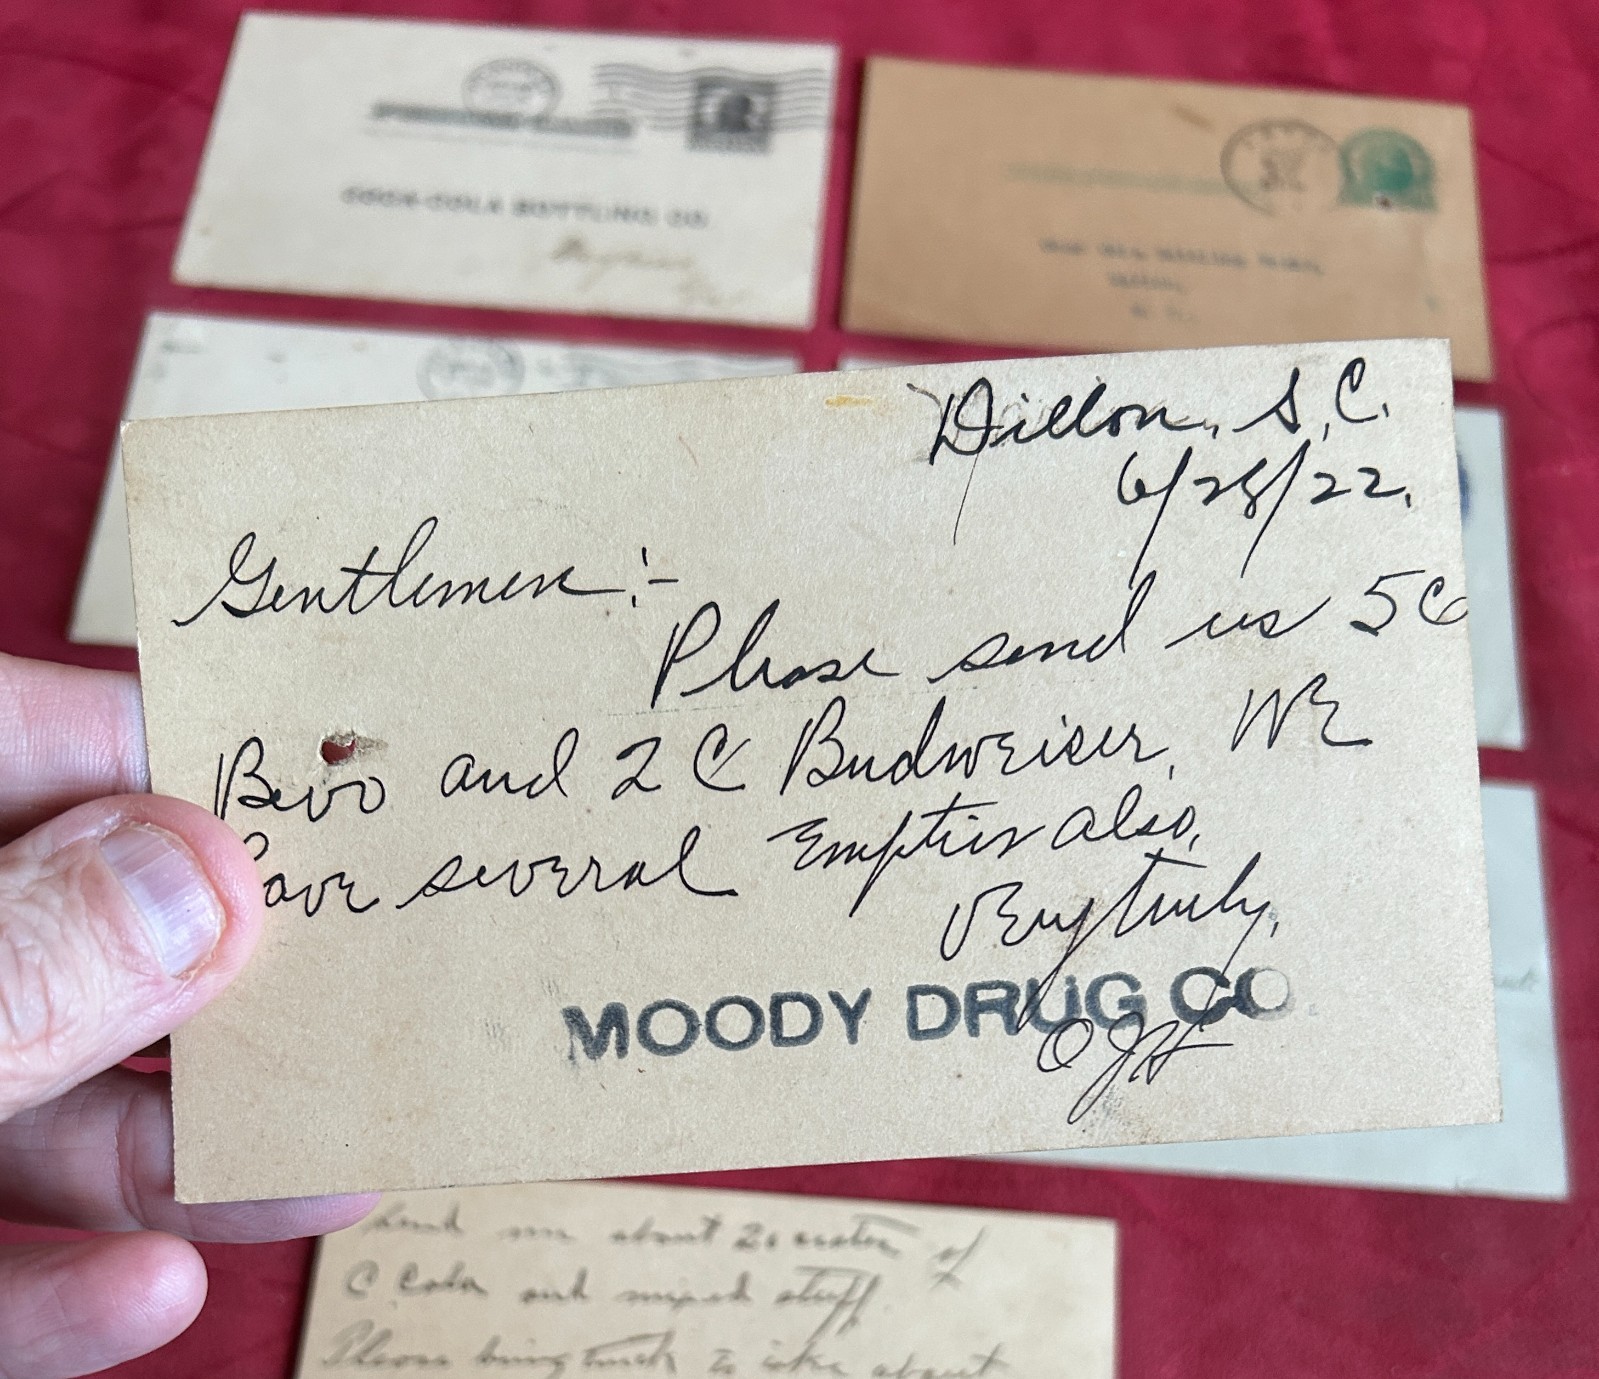 COCA-COLA BOTTLING CO.
Dillon, S.C.
6/28/22.
Gentlemen:-
Please send us 5C
Bevo and 2 C Budweiser, We
have several Empties also,
Very truly,
MOODY DRUG CO
OJH
Send me about 20 crates of
C Cola and mixed stuff.
Please bring truck to take about